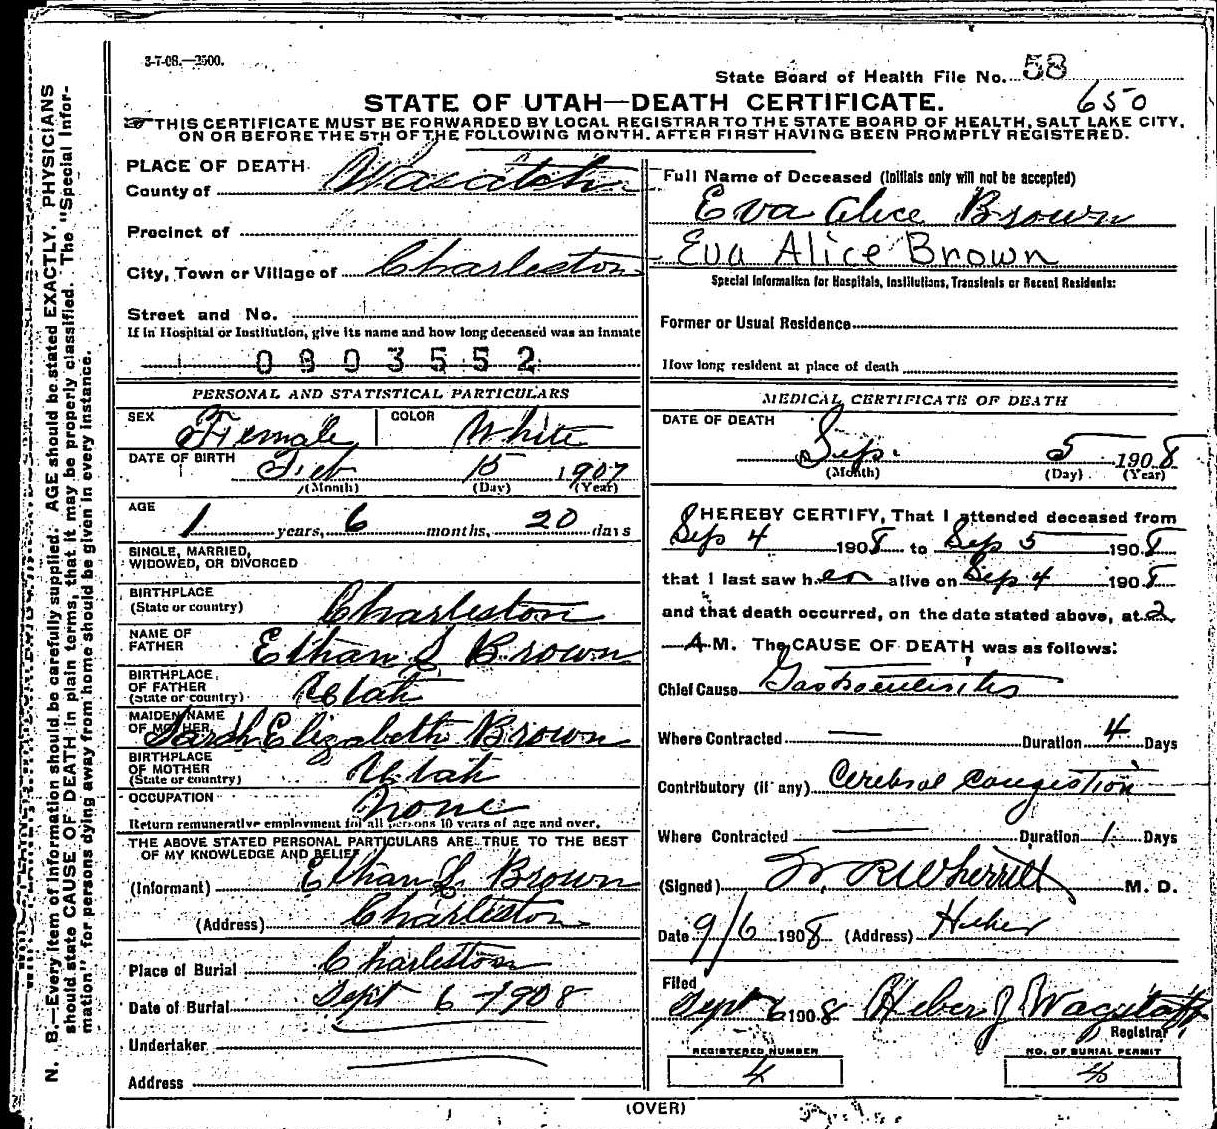 3-7-08.—2500.
State Board of Health File No. 58
650
STATE OF UTAH—DEATH CERTIFICATE.
THIS CERTIFICATE MUST BE FORWARDED BY LOCAL REGISTRAR TO THE STATE BOARD OF HEALTH, SALT LAKE CITY,
ON OR BEFORE THE 5TH OF THE FOLLOWING MONTH, AFTER FIRST HAVING BEEN PROMPTLY REGISTERED.
N. B.—Every item of information should be carefully supplied. AGE should be stated EXACTLY. PHYSICIANS
should state CAUSE OF DEATH in plain terms, that it may be properly classified. The "Special Infor-
mation" for persons dying away from home should be given in every instance.
PLACE OF DEATH
County of Wasatch
Precinct of
City, Town or Village of Charleston
Street and No.
If in Hospital or Institution, give its name and how long deceased was an inmate
0803552
PERSONAL AND STATISTICAL PARTICULARS
SEX Female COLOR White
DATE OF BIRTH Feb 15 1907
(Month) (Day) (Year)
AGE
1 years, 6 months, 20 days
SINGLE, MARRIED,
WIDOWED, OR DIVORCED
BIRTHPLACE
(State or country) Charleston
NAME OF
FATHER Ethan L Brown
BIRTHPLACE
OF FATHER
(State or country) Utah
MAIDEN NAME
OF MOTHER Sarah Elizabeth Brown
BIRTHPLACE
OF MOTHER
(State or country) Utah
OCCUPATION None
Return remunerative employment for all persons 10 years of age and over.
THE ABOVE STATED PERSONAL PARTICULARS ARE TRUE TO THE BEST
OF MY KNOWLEDGE AND BELIEF
(Informant) Ethan L. Brown
(Address) Charleston
Place of Burial Charleston
Date of Burial Sept 6 - 1908
Undertaker
Address
Full Name of Deceased (Initials only will not be accepted)
Eva Alice Brown
Eva Alice Brown
Special Information for Hospitals, Institutions, Transients or Recent Residents:
Former or Usual Residence
How long resident at place of death
MEDICAL CERTIFICATE OF DEATH
DATE OF DEATH
Sep. 5 1908
(Month) (Day) (Year)
I HEREBY CERTIFY, That I attended deceased from
Sep 4 1908 to Sep 5 1908
that I last saw her alive on Sep 4 1908
and that death occurred, on the date stated above, at 2
A M. The CAUSE OF DEATH was as follows:
Chief Cause Gastroenteritis
Where Contracted — Duration 4 Days
Contributory (if any) Cerebral Congestion
Where Contracted — Duration 1 Days
(Signed) W. R Wherritt M. D.
Date 9/6 1908 (Address) Heber
Filed
Sept 6 1908 Heber J Wagstaff
Registrar
REGISTERED NUMBER
4
NO. OF BURIAL PERMIT
(OVER)